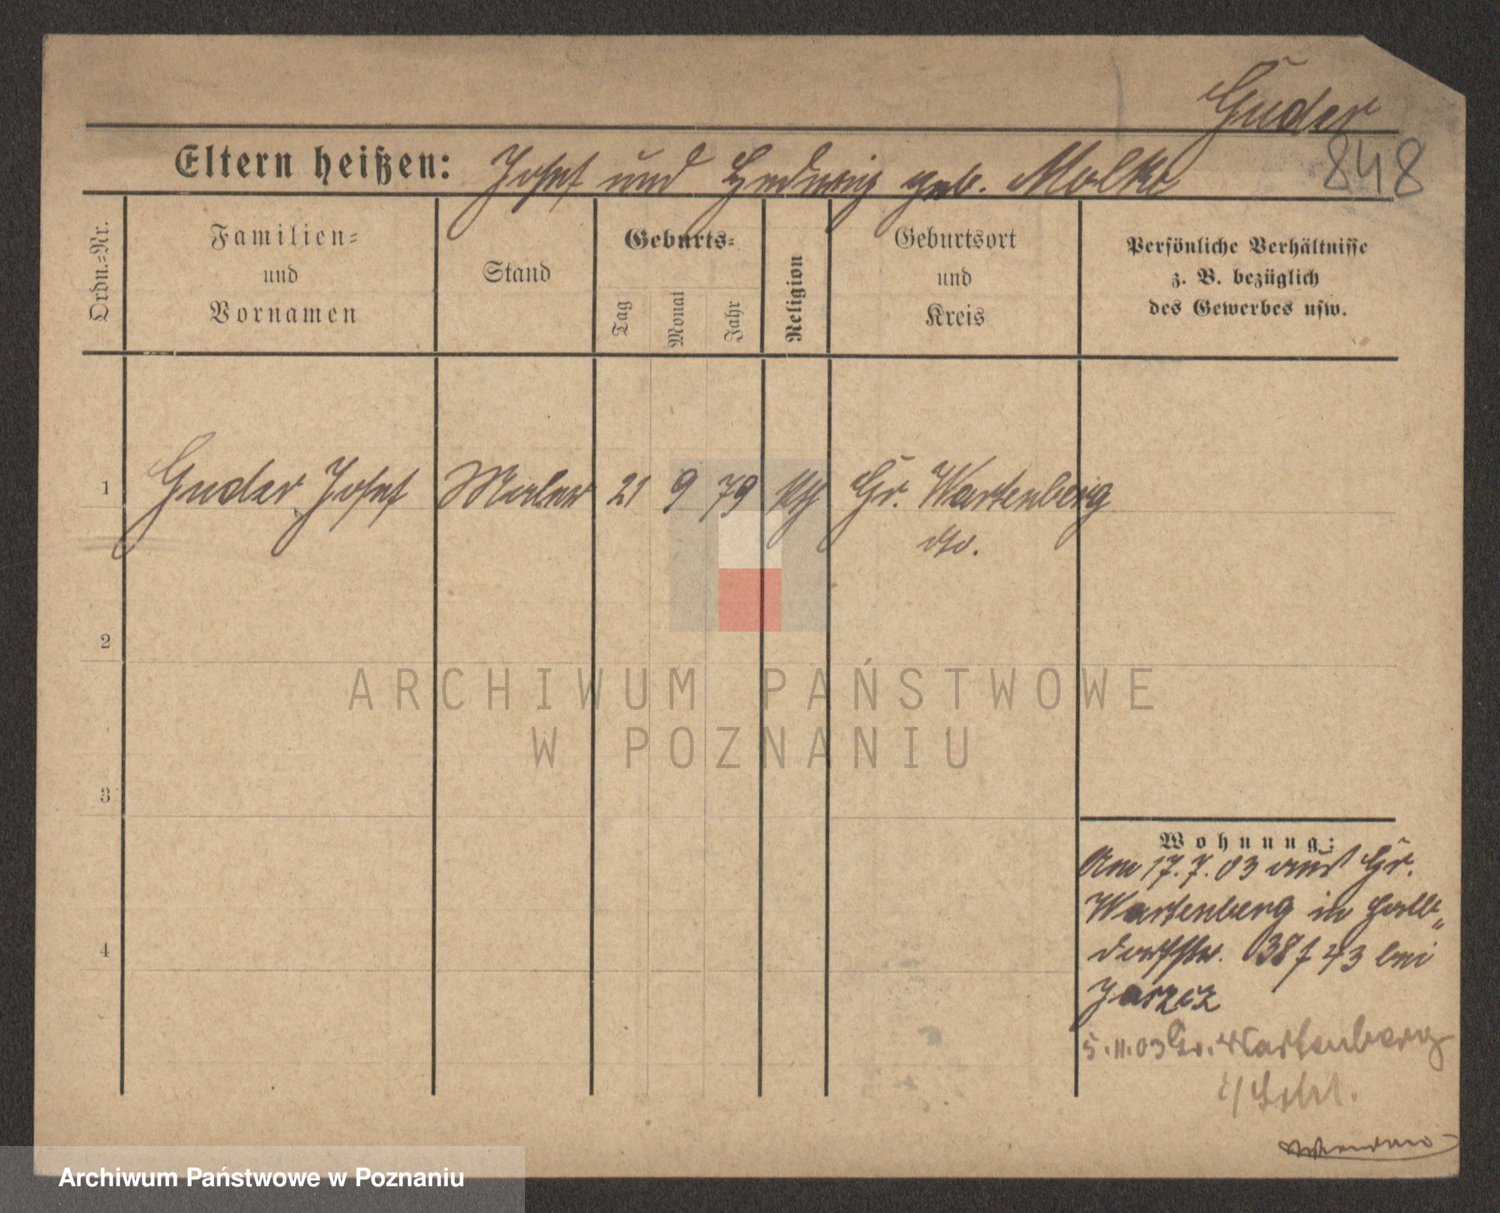 Guder
848
Eltern heißen: Josef und Hedwig geb. Molke
Ordn.-Nr.
Familien-
und
Vornamen
Stand
Geburts-
Tag
Monat
Jahr
Religion
Geburtsort
und
Kreis
Persönliche Verhältnisse
z. B. bezüglich
des Gewerbes usw.
1 Guder Josef Maler 21 9 79 kth Gr. Wartenberg
dto.
2
ARCHIWUM PAŃSTWOWE
W POZNANIU
3
Wohnung:
Am 17.7.03 aus Gr.
Wartenberg in Halb
dorfstr. 38 f 43 bei
4
Jarzcz
5.11.03 Gr. Wartenberg
i/Schl.
Archiwum Państwowe w Poznaniu